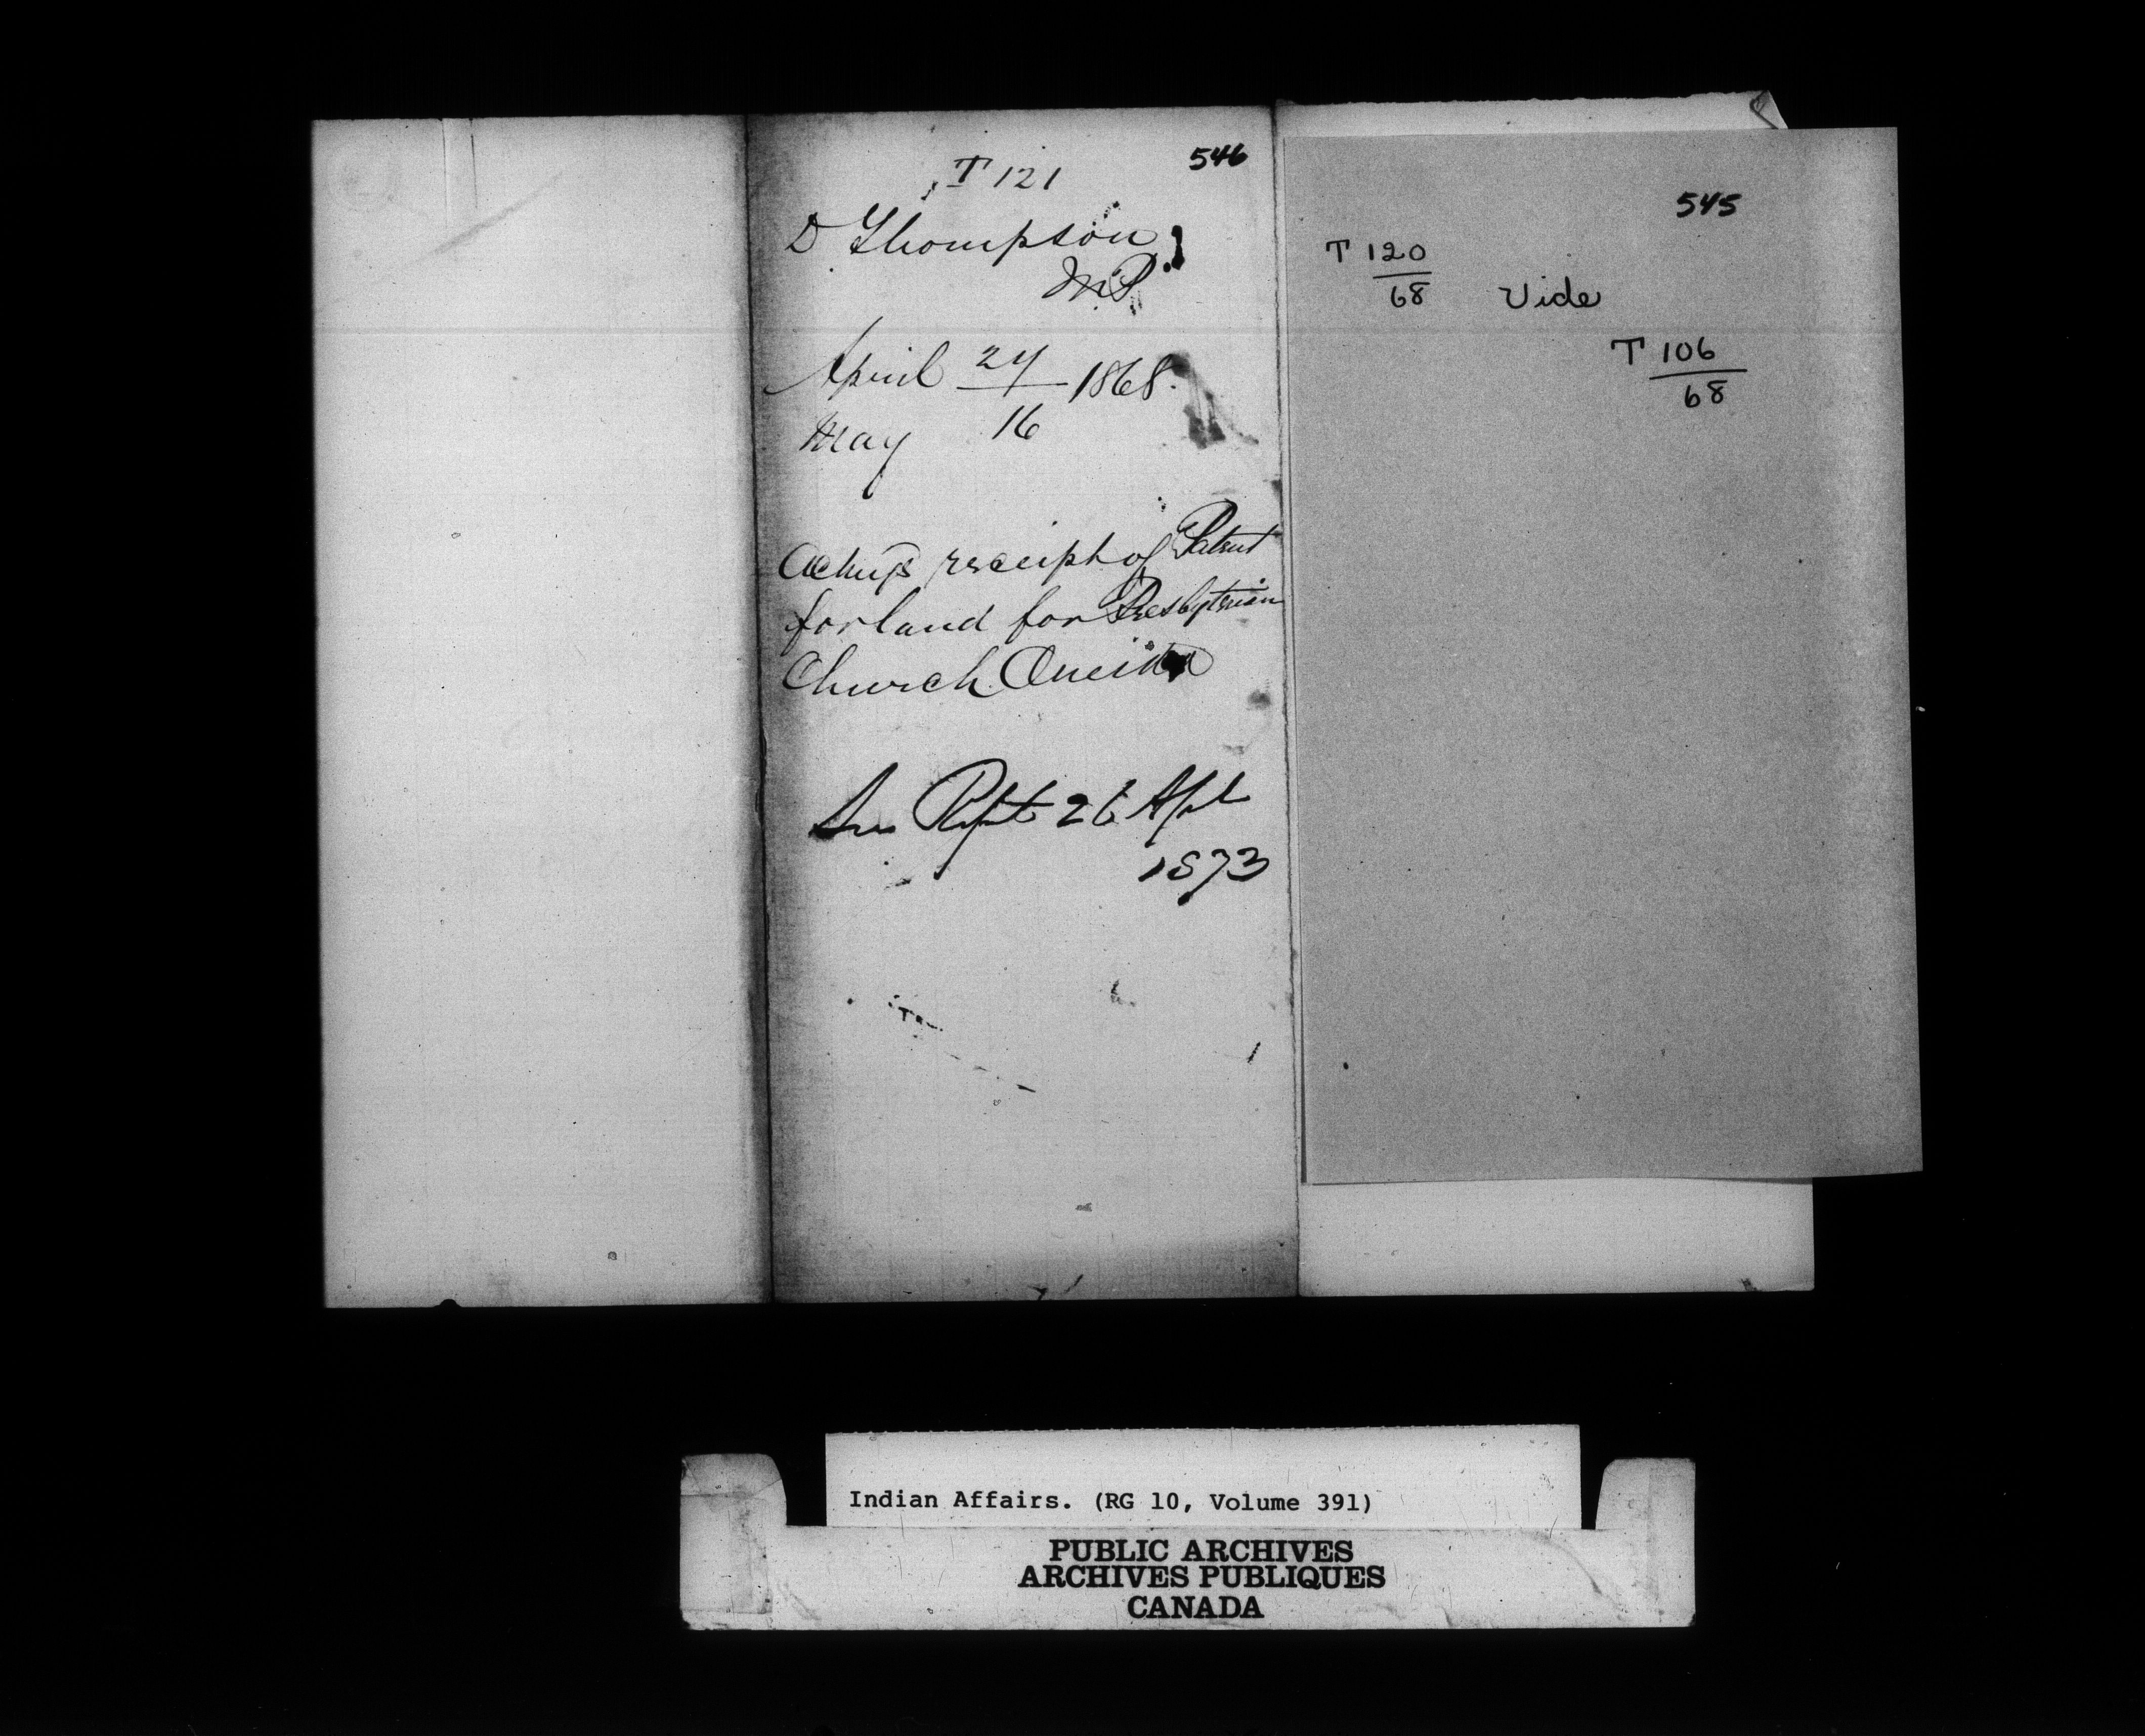 546
T 121
D Thompson
M.P.
April 24 1868.
May 16
Ackngs receipt of Patent
for land for Presbyterian
Church Oneida
See Rept 26 Apl
1873
545
T 120
68
Vide
T 106
68
Indian Affairs. (RG 10, Volume 391)
PUBLIC ARCHIVES
ARCHIVES PUBLIQUES
CANADA